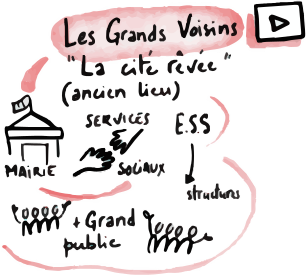 Les Grands Voisins
"La cité rêvée"
(ancien lieu)
SERVICES
E.S.S
MAIRIE
SOCIAUX
structures
+ Grand
public